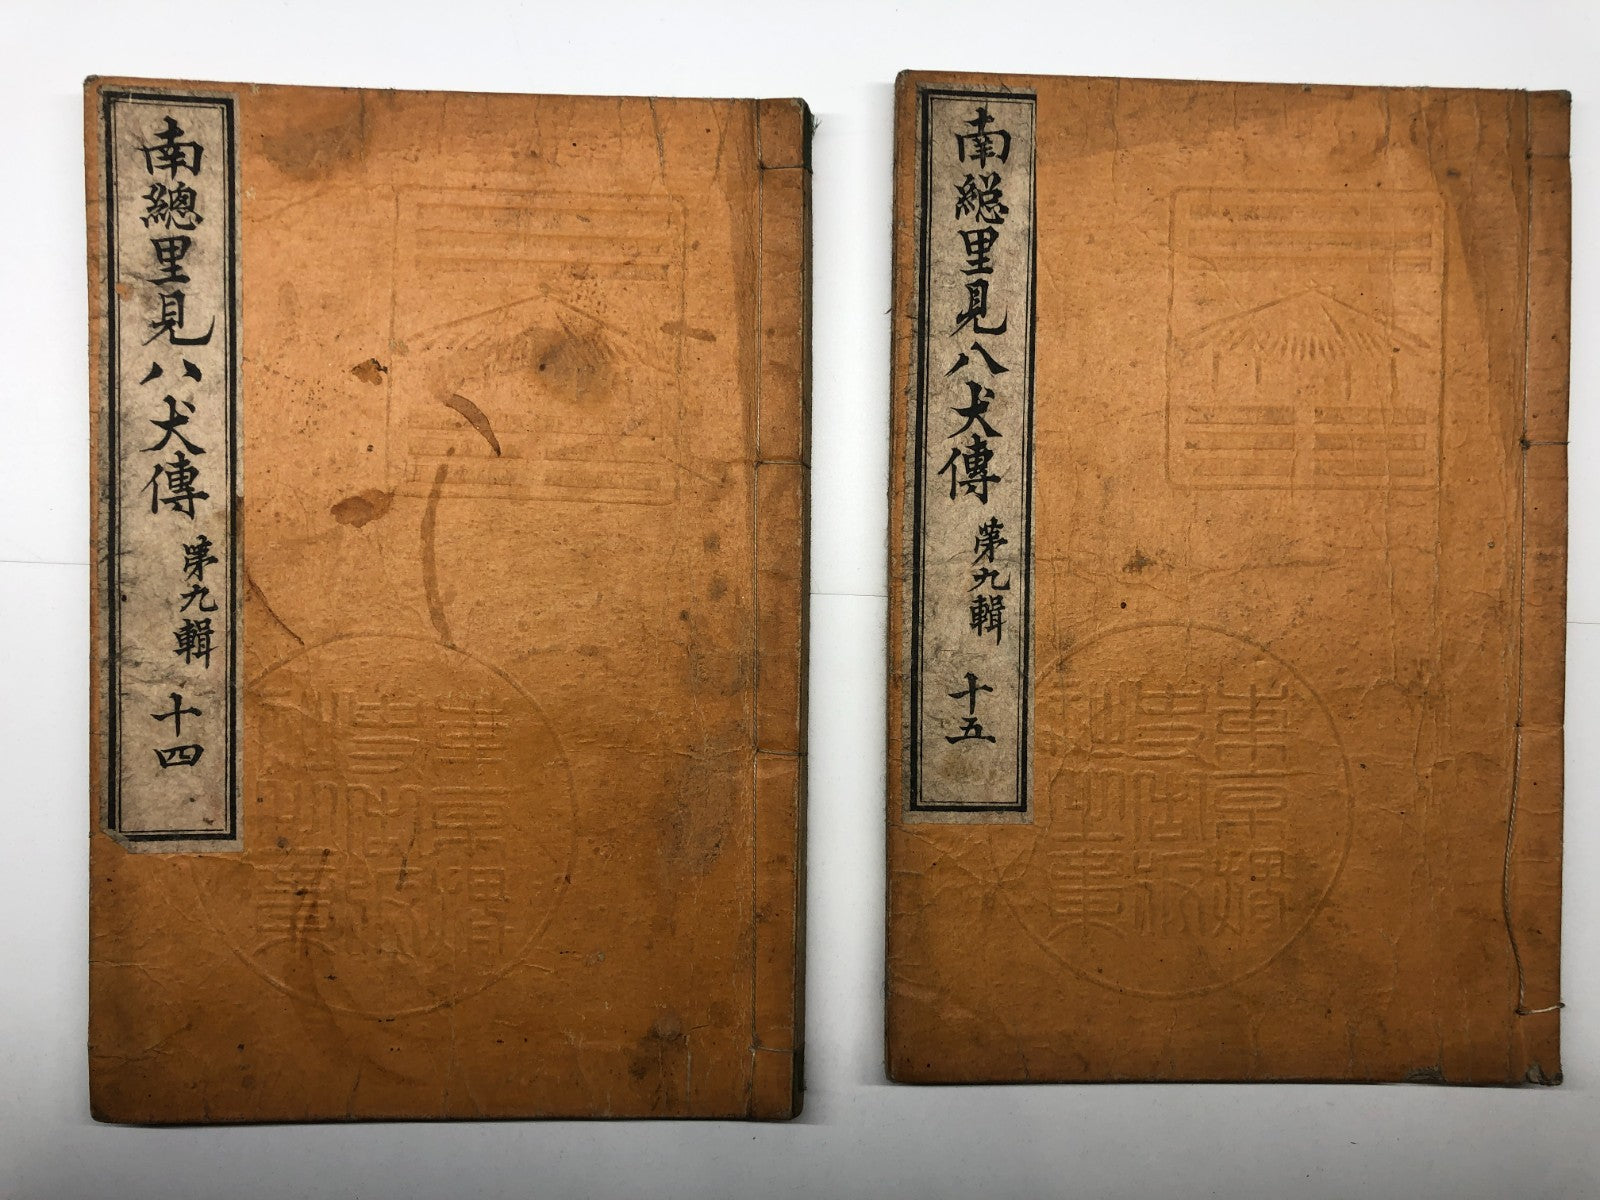 南總里見八犬傳 第九輯 十四
南総里見八犬傳 第九輯 十五